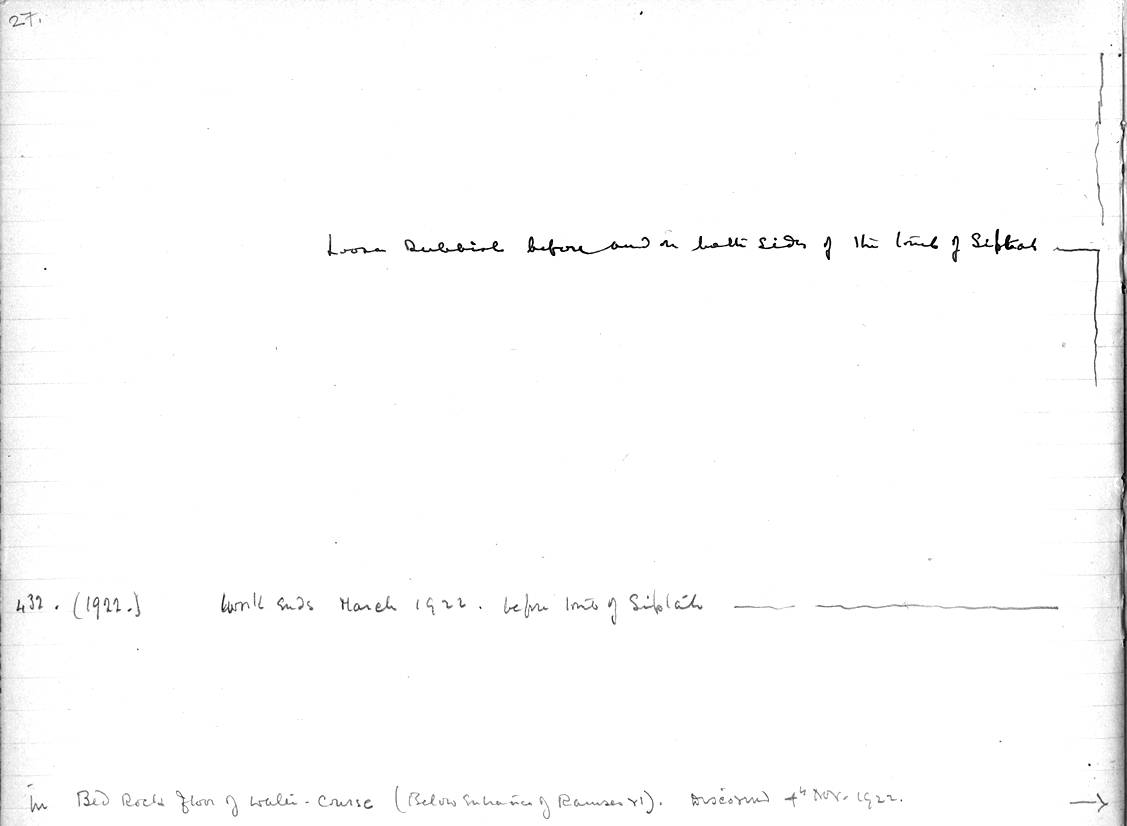 27.
Loose Rubbish before and on both sides of the tomb of Siptah
432. (1922.) Work ends March 1922. before tomb of Siptah
In Bed Rock floor of water-course (Below entrance of Ramses VI). Discovered 4th Nov. 1922.